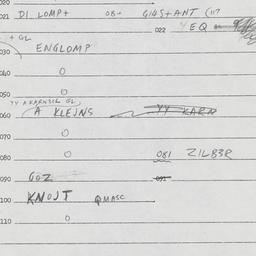 020
021 DI LOMP+ 08+ GIUS+ANT (117
022 YEQ
+ GL
030 ENGLOMP
040 O
050 O
YY A KARNZIL GL
060 A KLEJNS YY KARN
070 O
080 O 081 ZILB3R
090 GOZ 091
100 KNOJT QMASC
110 O